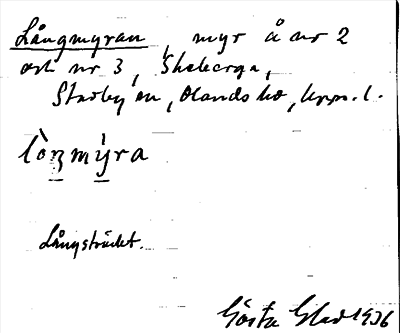 Långmyran, myr å nr 2
och nr 3, Skeberga,
Starby sn, Olands hd, Upps. l.
lòŋmỳra
Långsträcket.
Gösta Glad 1936